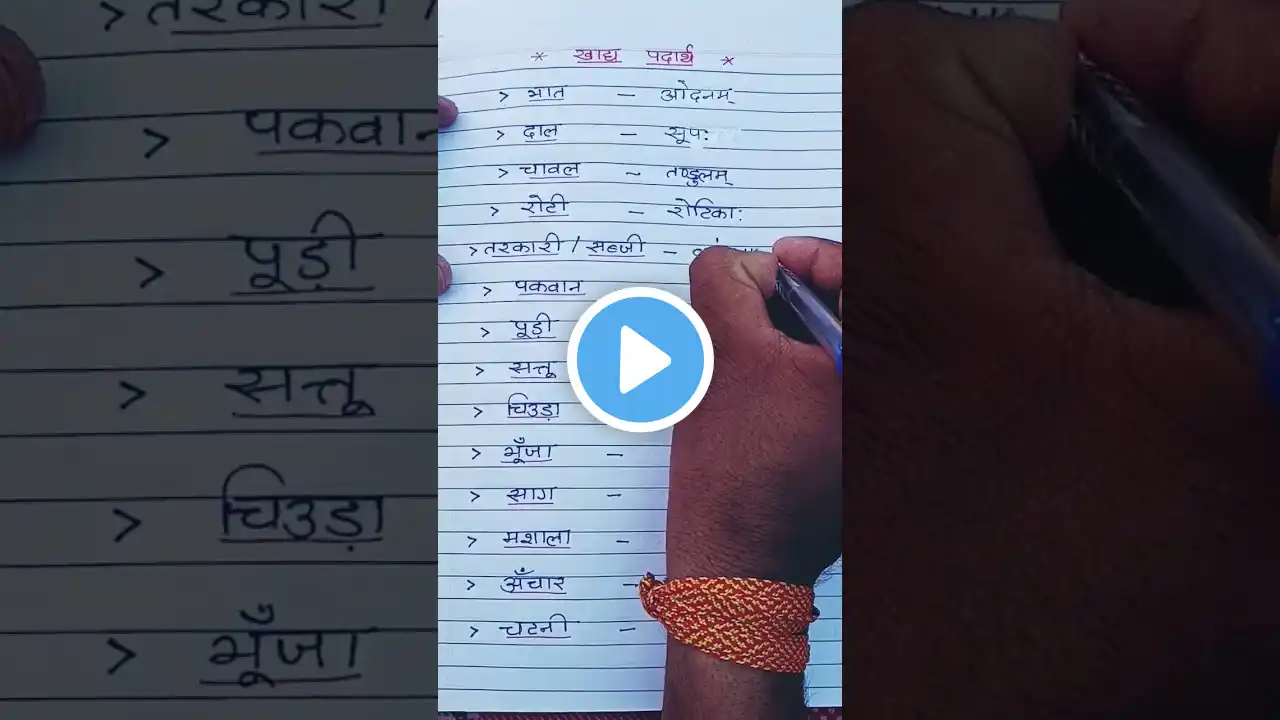 * खाद्य पदार्थ *
> भात – ओदनम्
> दाल – सूपः
> चावल – तण्डुलम्
> रोटी – रोटिकाः
> तरकारी / सब्जी –
> पकवान
> पूड़ी
> सत्तू
> चिउड़ा
> भूँजा –
> साग –
> मशाला –
> अँचार –
> चटनी –
> तरकारी /
> पकवान
> पूड़ी
> सत्तू
> चिउड़ा
> भूँजा